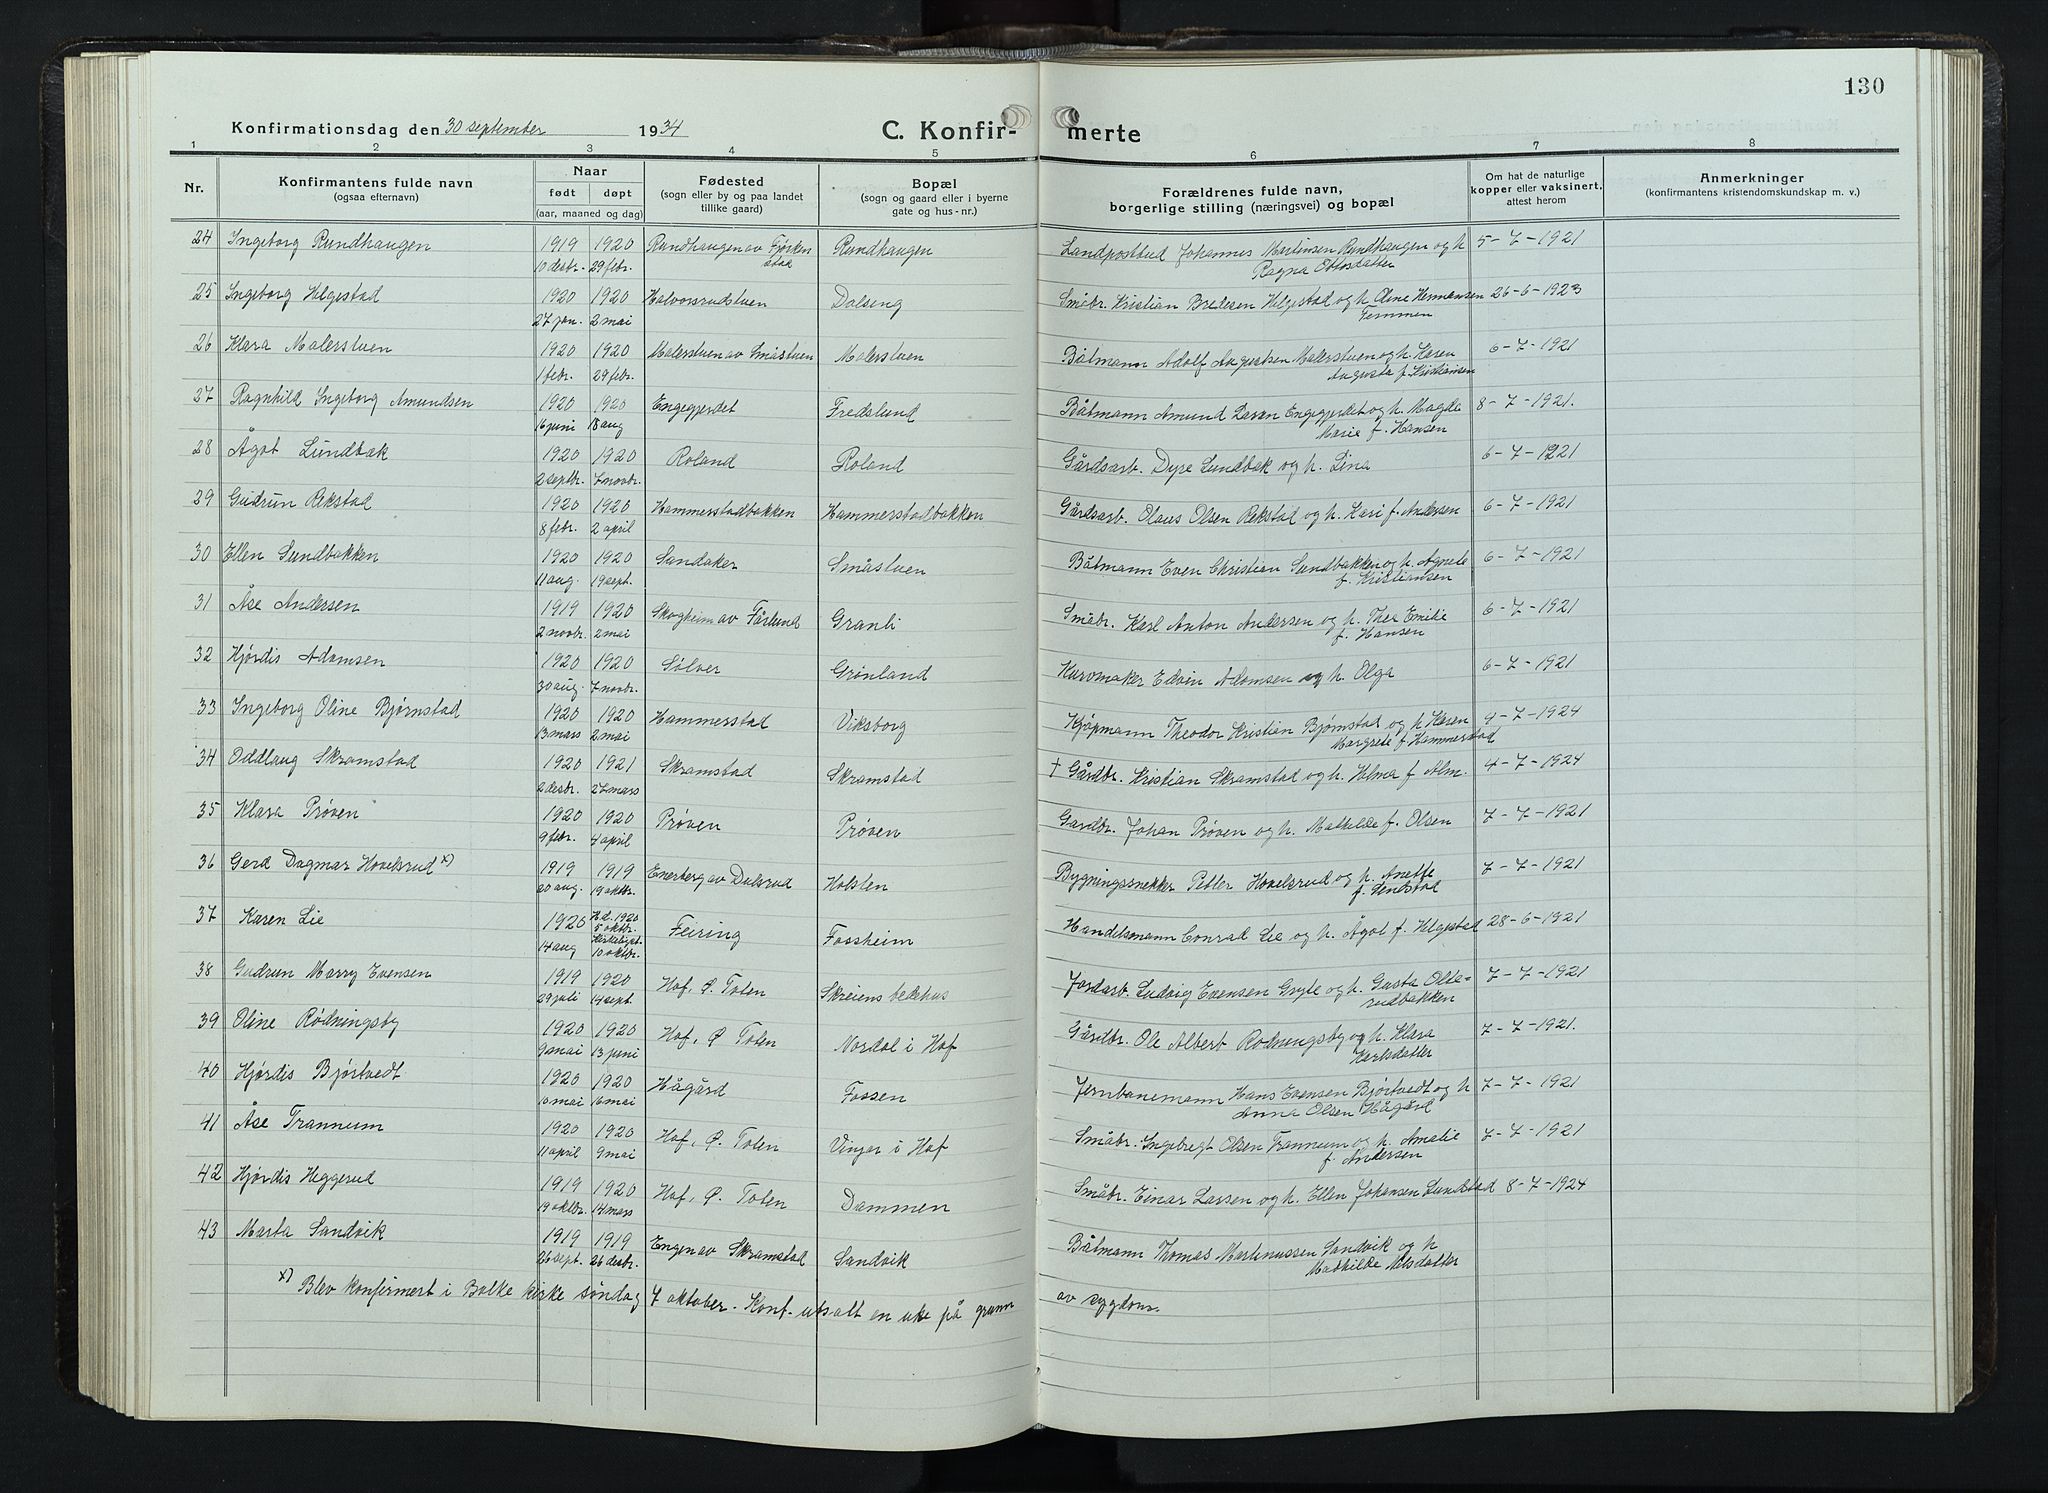 130
Konfirmationsdag den 30 september 1934 C. Konfirmerte
1 2 3 4 5 6 7 8
Nr. Konfirmantens fulde navn (ogsaa efternavn) Naar født døpt (aar, maaned og dag) Fødested (sogn eller by og paa landet tillike gaard) Bopæl (sogn og gaard eller i byerne gate og hus-nr.) Forældrenes fulde navn, borgerlige stilling (næringsvei) og bopæl Om hat de naturlige kopper eller vaksinert, attest herom Anmerkninger (konfirmantens kristendomskundskap m. v.)
24 Ingeborg Rundhaugen 1919 1920 Rundhaugen av Rundhaugen Landpostbud Johannes Martinsen Rundhaugen og h 5-7-1921
10 desbr. 29 febr. Ragna Ottosdatter
25 Ingeborg Helgestad 1920 1920 Halvorsrudstuen Dalseng Småbr. Kristian Bredesen Helgestad og h. Oline Hermansen 26-6-1923
27 jan. 2 mai
26 Klara Malerstuen 1920 1920 Malerstuen av Småstuen Malerstuen Båtmann Adolf Augustsen Malerstuen og h. Karen 6-7-1921
1 febr. 29 febr. Augusta f. Kristiansen
27 Ragnhild Ingeborg Amundsen 1920 1920 Engegjerdet Fredslund Båtmann Amund Larsen Engegjerdet og h. Magda 8-7-1921.
16 juni 18 aug Marie f. Hansen
28 Ågot Lundbak 1920 1920 Roland Roland Gårdsarb. Dyre Lundbak og h. Lina 6-7-1921
2 septbr. 7 novbr.
29 Gudrun Rekstad 1920 1920 Hammerstadbakken Hammerstadbakken Gårdsarb. Olaus Olsen Rekstad og h. Kari f. Andersen 6-7-1921
8 febr. 2 april
30 Ellen Sundbakken 1920 1920 Sandaker Småstuen Båtmann Even Christian Sundbakken og h. Agnete 6-7-1921
11 aug. 19 sept. f. Kristiansen
31 Åse Andersen 1919 1920 Skogheim av Fårlund Granli Småbr. Karl Anton Andersen og h. Thea Emilie 6-7-1921
2 novbr. 2 mai f. Hansen
32 Hjørdis Adamsen 1920 1920 Sølver Grønland Kurvmaker Edvin Adamsen og h. Olga 6-7-1921
30 aug. 7 novbr.
33 Ingeborg Oline Bjørnstad 1920 1920 Hammerstad Viksborg Kjøpmann Theodor Kristian Bjørnstad og h. Karen 4-7-1924
13 mars 2 mai Margrete f. Hammerstad
34 Oddlaug Skramstad 1920 1921 Skramstad Skramstad † Gårdbr. Kristian Skramstad og h. Helma f Alm. 4-7-1924
2 desbr. 27 mars
35 Klara Prøven 1920 1920 Prøven Prøven Gardbr. Johan Prøven og h. Mathilde f. Olsen 7-7-1921
9 febr. 4 april
36 Gerd Dagmar Hovelsrud x) 1919 1919 Enerberg av Dalsrud Holsten Bygningssnekker Petter Hovelsrud og h. Anette 7-7-1921
20 aug. 19 oktbr.
37 Karen Lie 1920 H.d. 1920 Feiring Fossheim Handelsmann Conrad Lie og h. Ågot f. Helgestad 28-6-1921
14 aug 5 oktbr. 10 oktbr.
38 Gudrun Marry Evensen 1919 1920 Hof, Ø. Toten Skreiens bedehus Jordarb. Ludvig Evensen Gryte og h. Gusta Olte- 7-7-1921
29 juli 14 sept. rudbakken
39 Oline Rødningsby 1920 1920 Hof, Ø Toten Nordal i Hof Gårdbr. Ole Albert Rødningsby og h. Klara 7-7-1921.
9 mai 13 juni Karlsdatter
40 Hjørdis Bjørtvedt 1920 1920 Hågård Fossen Jernbanemann Hans Evensen Bjørtvedt og h 7-7-1921
10 mai 16 mai Anna Olsen Hågård
41 Åse Trannum 1920 1920 Hof, Ø. Toten Vinjar i Hof Småbr. Ingebregt Olsen Trannum og h. Amalie 7-7-1921
11 april 9 mai f. Andersen
42 Hjørdis Heggerud 1919 1920 Hof, Ø. Toten Dammen Småbr. Einar Larsen og h. Ellen Johansen Lundstad 8-7-1924
19 oktbr. 14 mars
43 Marta Sandvik 1919 1919 Engen av Skramstad Sandvik Båtmann Thomas Martinussen Sandvik og h
26 sept. 26 desbr. Mathilde Nilsdatter
x) Blev konfirmert i Balke kirke søndag 7 oktober. Konf. utsatt en uke på grunn av sygdom.